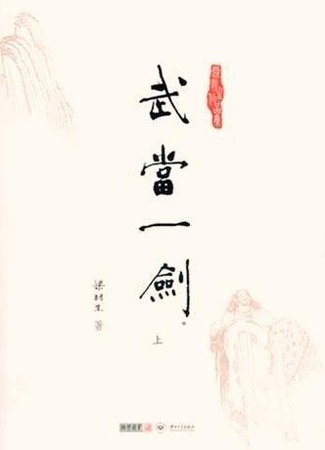 武當一劍
上
梁羽生 著